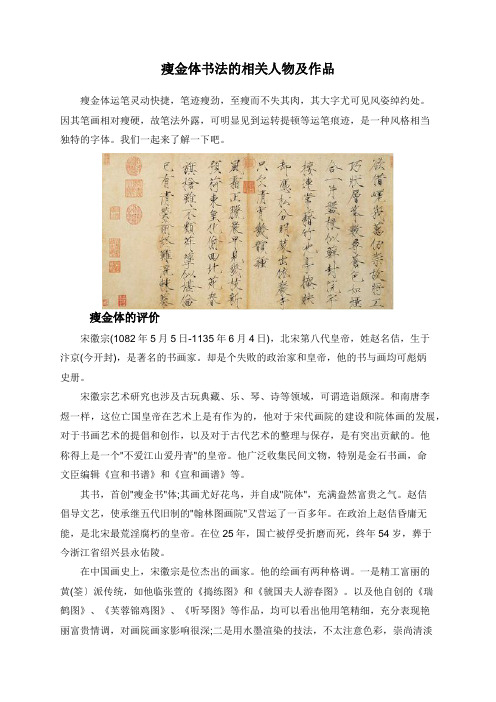 瘦金体书法的相关人物及作品
瘦金体运笔灵动快捷，笔迹瘦劲，至瘦而不失其肉，其大字尤可见风姿绰约处。
因其笔画相对瘦硬，故笔法外露，可明显见到运转提顿等运笔痕迹，是一种风格相当
独特的字体。我们一起来了解一下吧。
瘦金体的评价
宋徽宗(1082年5月5日-1135年6月4日)，北宋第八代皇帝，姓赵名佶，生于
汴京(今开封)，是著名的书画家。却是个失败的政治家和皇帝，他的书与画均可彪炳
史册。
宋徽宗艺术研究也涉及古玩典藏、乐、琴、诗等领域，可谓造诣颇深。和南唐李
煜一样，这位亡国皇帝在艺术上是有作为的，他对于宋代画院的建设和院体画的发展，
对于书画艺术的提倡和创作，以及对于古代艺术的整理与保存，是有突出贡献的。他
称得上是一个"不爱江山爱丹青"的皇帝。他广泛收集民间文物，特别是金石书画，命
文臣编辑《宣和书谱》和《宣和画谱》等。
其书，首创"瘦金书"体;其画尤好花鸟，并自成"院体"，充满盎然富贵之气。赵佶
倡导文艺，使承继五代旧制的"翰林图画院"又营运了一百多年。在政治上赵佶昏庸无
能，是北宋最荒淫腐朽的皇帝。在位25年，国亡被俘受折磨而死，终年54岁，葬于
今浙江省绍兴县永佑陵。
在中国画史上，宋徽宗是位杰出的画家。他的绘画有两种格调。一是精工富丽的
黄(筌〕派传统，如他临张萱的《捣练图》和《虢国夫人游春图》。以及他自创的《瑞
鹤图》、《芙蓉锦鸡图》、《听琴图》等作品，均可以看出他用笔精细，充分表现艳
丽富贵情调，对画院画家影响很深;二是用水墨渲染的技法，不太注意色彩，崇尚清淡